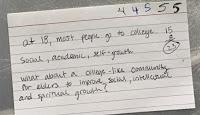 4 4 5 5 5
at 18, most people go to college 15
8
Social, academic, self-growth 23
what about a college-like community
for elders to improve social, intellectual
and spiritual growth?